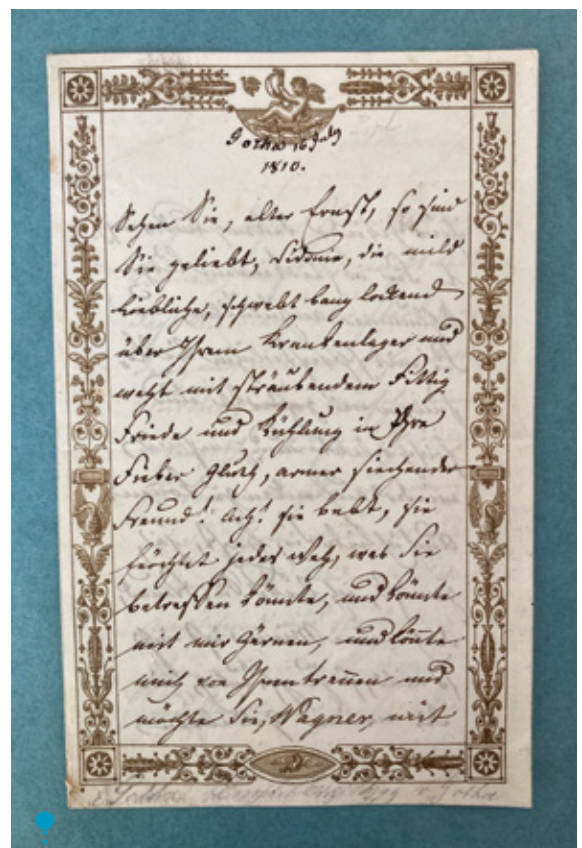 Gotha 16 July
1810.
Sehen Sie, alter Ernst, so sind
Sie geliebt, Sidonie, die mild
Liebliche, schwebt bang lockend
über Ihrem Krankenlager und
weht mit sträubendem Fittig
Friede und Kühlung in Ihre
Fieber Gluth, armer siechender
Freund! Ach! sie bebt, sie
fürchtet jedes Weh, was Sie
betreffen könnte, und könnte
mit mir zürnen, und könte
mich von Ihnen trennen und
möchte Sie, Wagner, mit
Gotha